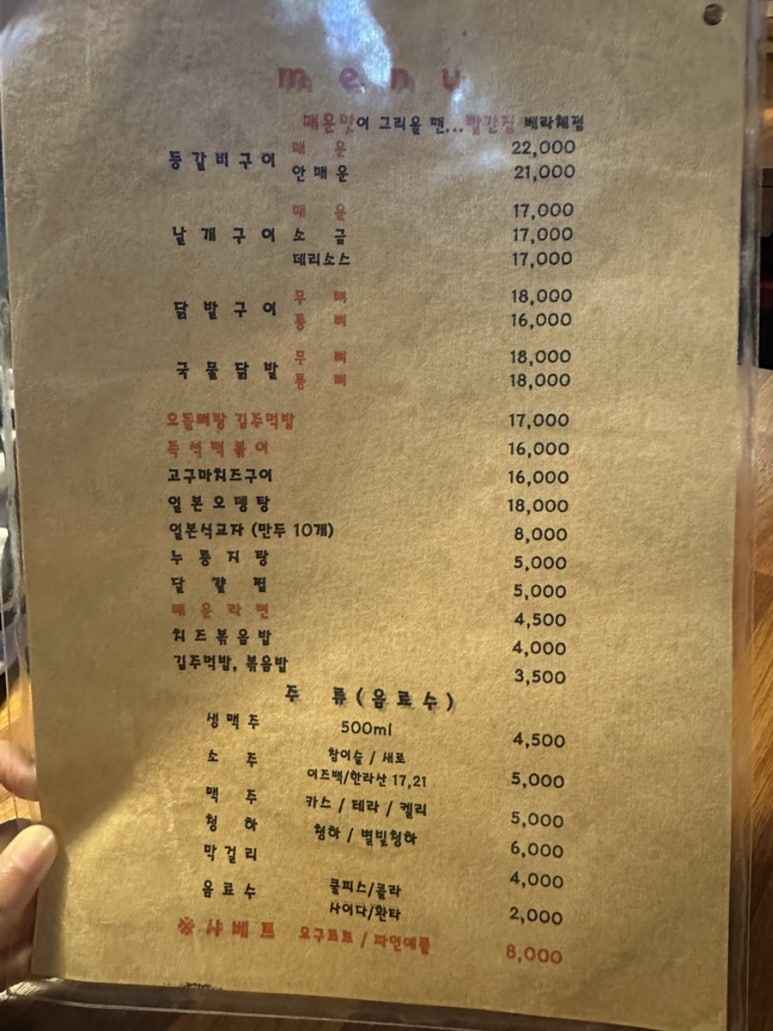 menu
매운맛이 그리울 땐...빨간점 베라체점
등갈비구이 매운 22,000
안매운 21,000
날개구이 매운 17,000
소금 17,000
데리소스 17,000
닭발구이 무뼈 18,000
통뼈 16,000
국물닭발 무뼈 18,000
통뼈 18,000
오돌뼈랑 김주먹밥 17,000
즉석떡볶이 16,000
고구마치즈구이 16,000
일본오뎅탕 18,000
일본식교자 (만두 10개) 8,000
누룽지탕 5,000
달걀찜 5,000
매운라면 4,500
치즈볶음밥 4,000
김주먹밥, 볶음밥 3,500
주 류(음료수)
생맥주 500ml 4,500
소주 참이슬 / 새로 5,000
이즈백/한라산 17,21
맥주 카스 / 테라 / 켈리 5,000
청하 청하 / 별빛청하 6,000
막걸리 4,000
음료수 쿨피스/콜라 2,000
사이다/환타
※샤베트 요구르트 / 파인애플 8,000